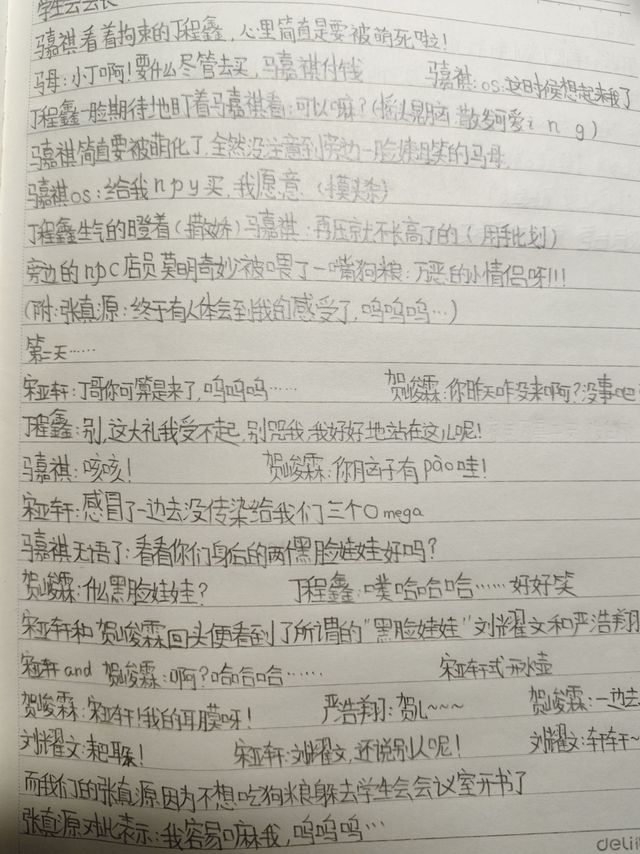 学生会会长
马嘉祺看着拘束的丁程鑫,心里简直是要被萌死啦!
马母:小丁啊!要什么尽管去买,马嘉祺付钱 马嘉祺:os:这时候想起来我了
丁程鑫一脸期待地盯着马嘉祺看:可以嘛?(摇头晃脑 散多可爱ing)
马嘉祺简直要被萌化了,全然没注意到旁边一脸姨母笑的马母,
马嘉祺os:给我npy买,我愿意(摸头杀)
丁程鑫生气的瞪着(撒娇)马嘉祺:再压就不长高了的(用手比划)
旁边的npc店员莫明奇妙被喂了一嘴狗粮:万恶的小情侣呀!!!
(附:张真源:终于有人体会到我的感受了,呜呜呜…)
第二天……
宋亚轩:丁哥你可算是来了,呜呜呜…… 贺峻霖:你昨天咋没来啊?没事吧
丁程鑫:别,这大礼我受不起,别咒我,我好好地站在这儿呢!
马嘉祺:咳咳! 贺峻霖:你脑子有pào哇!
宋亚轩:感冒了一边去没传染给我们三个Omega
马嘉祺无语了:看看你们身后的两个黑脸娃娃好吗?
贺峻霖:什么黑脸娃娃? 丁程鑫:噗哈哈哈……好好笑
宋亚轩和贺峻霖回头便看到了所谓的"黑脸娃娃"刘耀文和严浩翔
宋亚轩and 贺峻霖:啊?哈哈哈…… 宋亚轩式开水壶
贺峻霖:宋亚轩!我的耳膜呀! 严浩翔:贺儿~~~ 贺峻霖:一边去
刘耀文:耙耳朵! 宋亚轩:刘耀文,还说别人呢! 刘耀文:轩轩~
而我们的张真源因为不想吃狗粮躲去学生会会议室开书了
张真源对此表示:我容易嘛我,呜呜呜…
deli